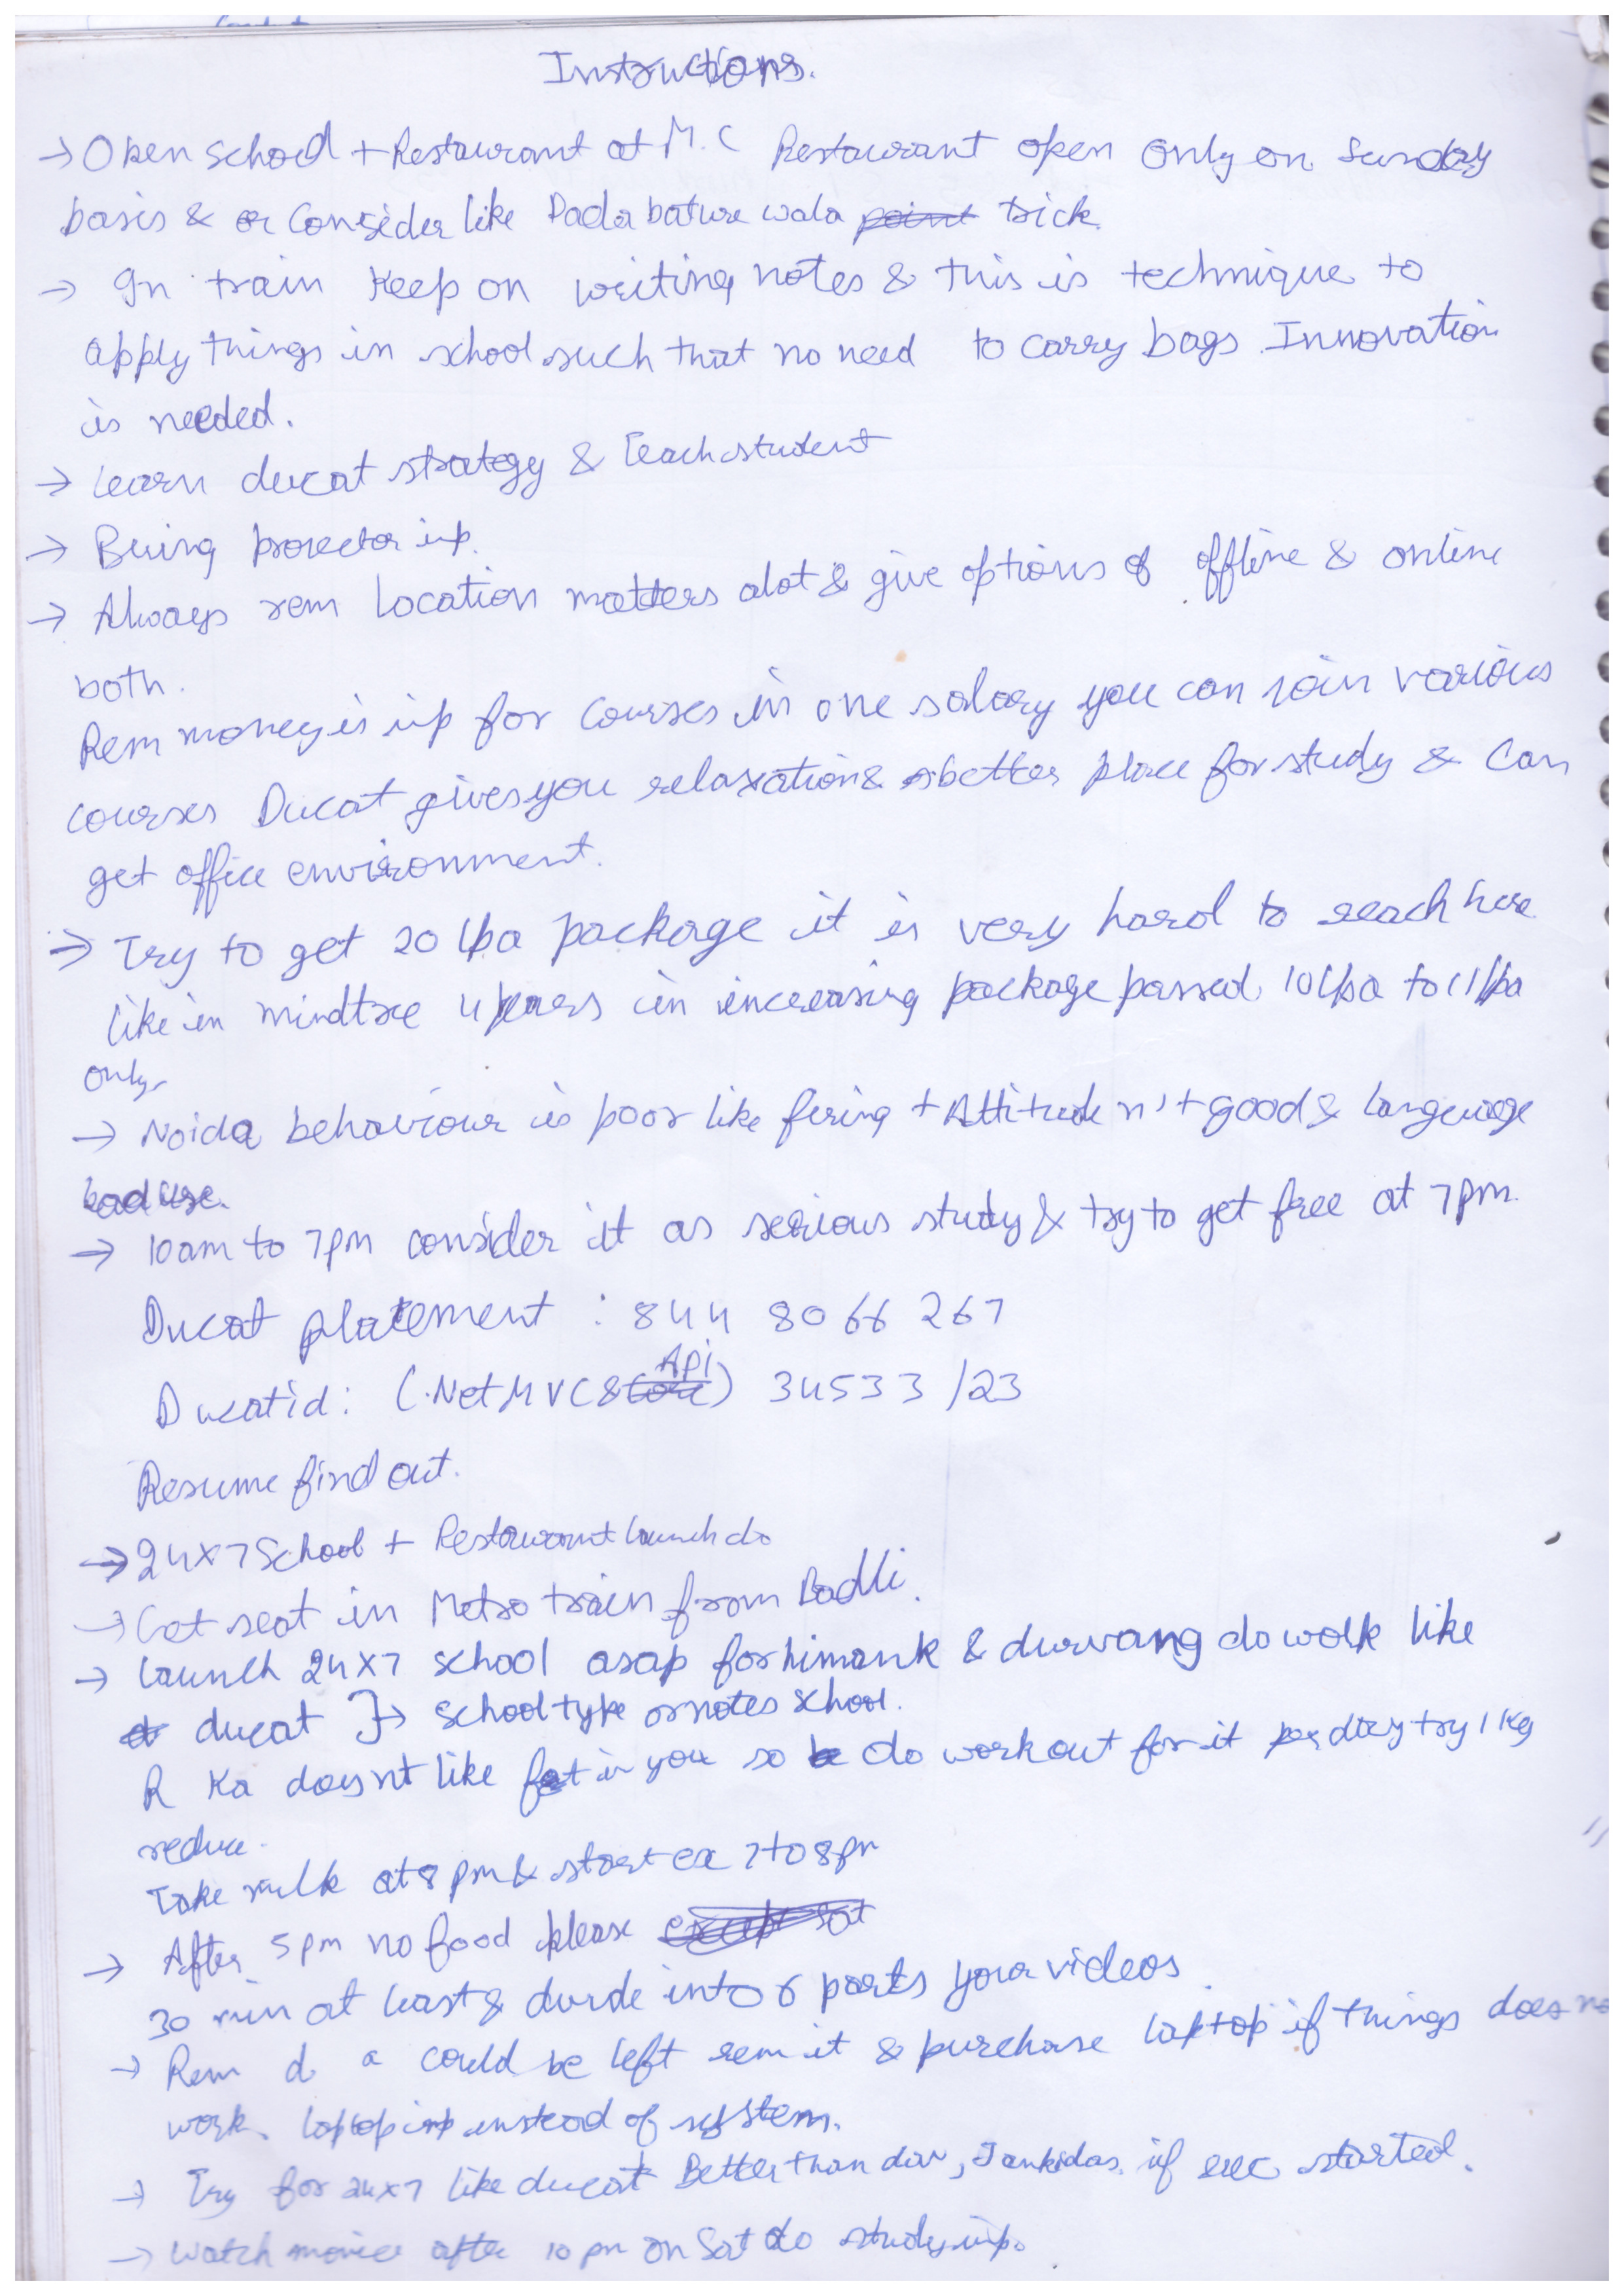 Instructions.
→ Open school + Restaurant at M.C Restaurant open only on Sunday
basis & or Consider like Dada bature wala point trick
→ In train Keep on writing notes & this is technique to
apply things in school such that no need to carry bags. Innovation
is needed.
→ Learn ducat strategy & Teach student
→ Being imp.
→ Always rem Location matters alot & give options of offline & online
both.
Rem money is imp for Courses in one salary you can join various
courses Ducat gives you relaxation & better place for study & Can
get office environment.
→ Try to get 20 lpa package it is very hard to reach here
like in mindtree 4 years in increasing package passed 10 lpa to 11 lpa
only
→ Noida behaviour is poor like firing + Attitude n't good & language
bad use.
→ 10am to 7pm consider it as serious study & try to get free at 7pm.
Ducat placement : 844 8066 267
Ducat id : (.Net MVC & Core Api) 34533/23
Resume find out.
→ 24x7 School + Restaurant launch do
→ Get seat in Metro train from Badli.
→ Launch 24x7 school asap for himank & do work like
ducat }→ School type or notes school.
R Ka doesnt like fat in you so do workout for it per day try 1 Kg
reduce.
Take milk at 8 pm & start ex 7 to 8 pm
→ After 5 pm no food please except Sat
30 min at least & divide into 6 parts your videos.
→ Rem d a could be left rem it & purchase laptop if things does no
work. laptop imp instead of system.
→ Try for 24x7 like ducat Better than dav, Jankidas. if started.
→ Watch movies after 10 pm on Sat do study imp.